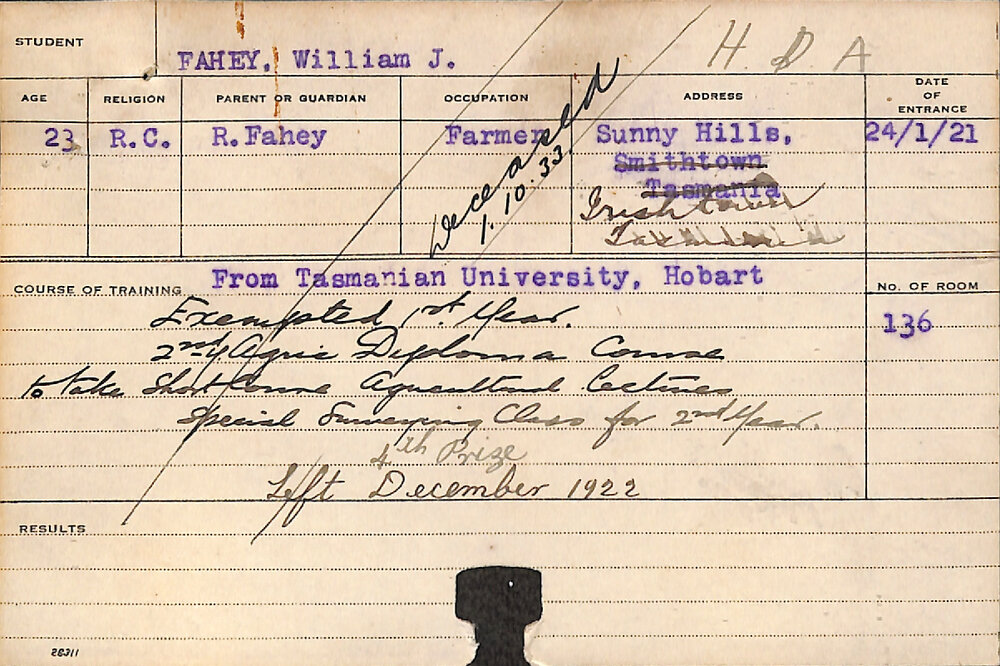 STUDENT
FAHEY, William J.
H. D A
AGE
RELIGION
PARENT OR GUARDIAN
OCCUPATION
ADDRESS
DATE
OF
ENTRANCE
23
R.C.
R. Fahey
Farmer
Sunny Hills,
24/1/21
Smithtown
Tasmania
Irishtown
Tasmania
Deceased
1.10.33.
COURSE OF TRAINING
From Tasmanian University, Hobart
No. OF ROOM
136
Exempted 1st. Year.
2nd Y Agric Diploma Course
to take Short Course Agricultural Lectures
Special Surveying Class for 2nd Year.
4th Prize
Left December 1922
RESULTS
28311